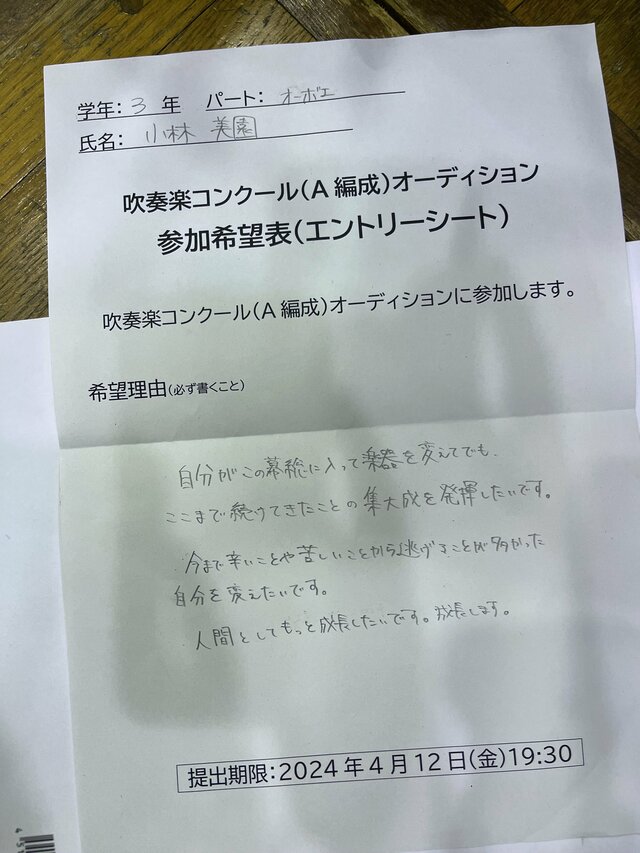 学年: 3 年 パート: オーボエ
氏名: 小林 美園
吹奏楽コンクール(A編成)オーディション
参加希望表(エントリーシート)
吹奏楽コンクール(A編成)オーディションに参加します。
希望理由(必ず書くこと)
自分がこの幕総に入って楽器を変えてでも、
ここまで続けてきたことの集大成を発揮したいです。
今まで辛いことや苦しいことから逃げることが多かった
自分を変えたいです。
人間としてもっと成長したいです。成長します。
提出期限:2024年4月12日(金)19:30